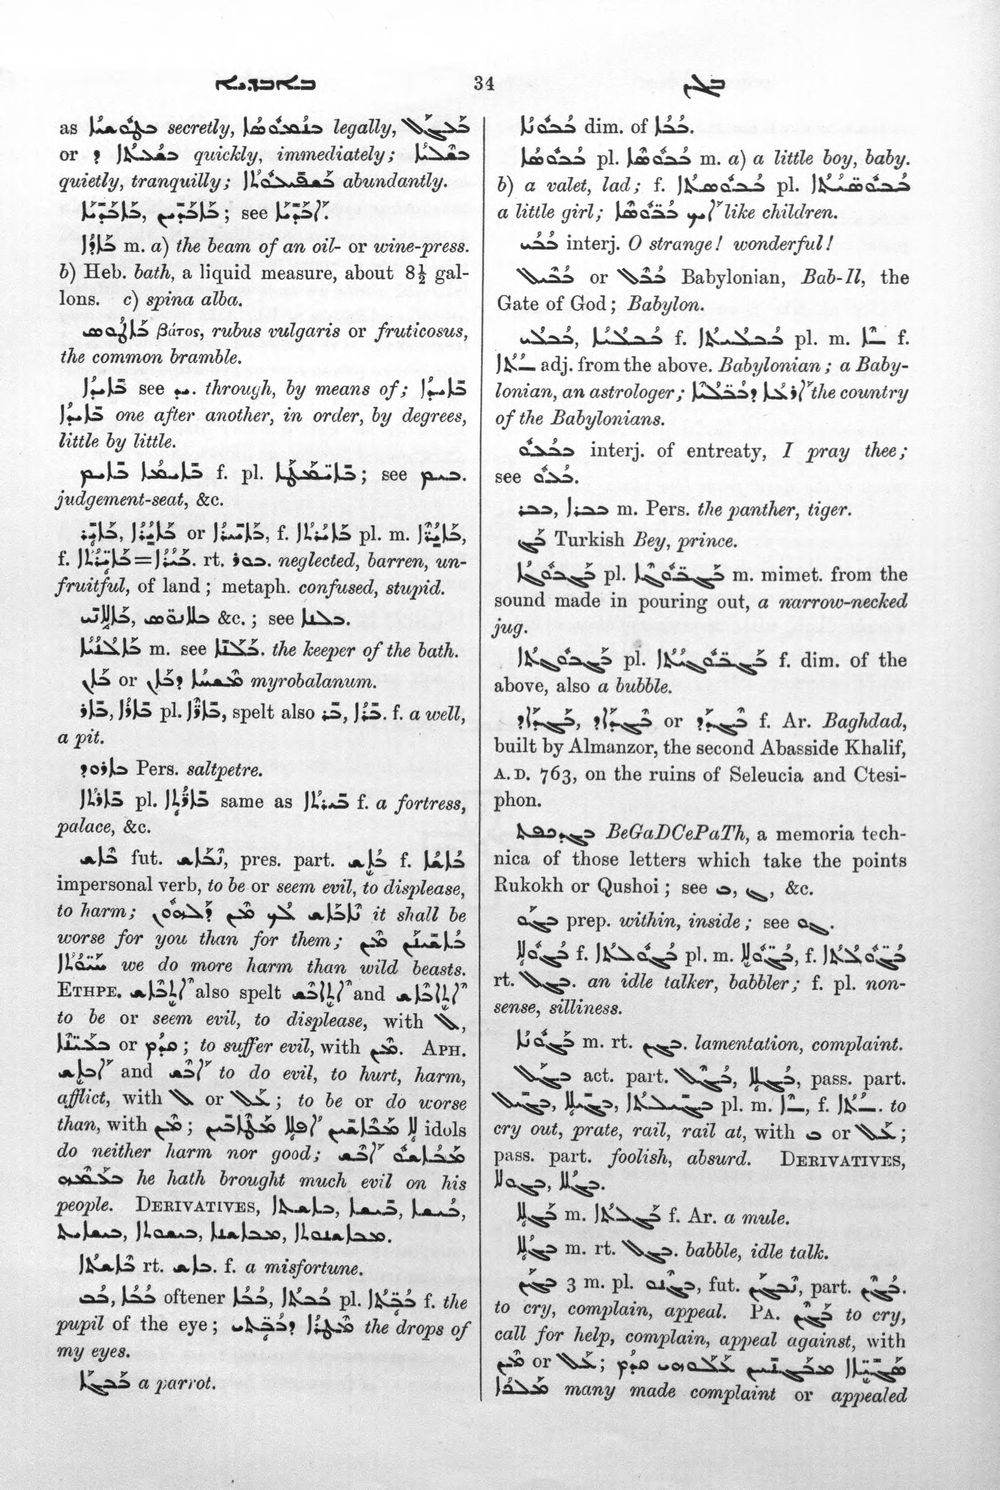 34 ܒܓܢ
as secretly, ܒܢܡܘܣܐ legally, ܒܥܓܠ
or quickly, immediately; ܒܫܠܝܐ
quietly, tranquilly; abundantly.
see
m. a) the beam of an oil- or wine-press.
b) Heb. bath, a liquid measure, about 8½ gal-
lons. c) spina alba.
ܒܐܛܘܣ βάτος, rubus vulgaris or fruticosus,
the common bramble.
ܒܐܝܕܐ see ܝܕ. through, by means of; ܒܐܝܕܐ
ܒܐܝܕܐ one after another, in order, by degrees,
little by little.
ܒܐܝܡ f. pl. ; see ܒܝܡ.
judgement-seat, &c.
ܒܐܝܪ, ܒܐܝܪܐ or ܒܐܝܪܐ, f. ܒܐܝܪܬܐ pl. m. ܒܐܝܪܐ,
f. ܒܐܝܪܬܐ = rt. ܒܘܪ. neglected, barren, un-
fruitful, of land; metaph. confused, stupid.
&c.; see
m. see the keeper of the bath.
ܒܐܢ or myrobalanum.
ܒܐܪ, ܒܐܪܐ pl. ܒܐܪܐ, spelt also ܒܪ, ܒܪܐ. f. a well,
a pit.
ܒܐܪܘܕ Pers. saltpetre.
ܒܐܪܬܐ pl. ܒܐܪܬܐ same as ܒܝܪܬܐ f. a fortress,
palace, &c.
ܒܐܫ fut. ܢܒܐܫ, pres. part. ܒܐܫ f. ܒܐܫܐ
impersonal verb, to be or seem evil, to displease,
to harm; ܢܒܐܫ ܠܟܘܢ ܡܢ ܕܠܗܘܢ it shall be
worse for you than for them; ܡܢ
ܚܝܘܬܐ we do more harm than wild beasts.
ETHPE. ܐܬܒܐܫ also spelt and
to be or seem evil, to displease, with ܠ,
ܒܥܝܢܐ or ܩܕܡ; to suffer evil, with ܡܢ. APH.
ܐܒܐܫ and ܐܒܫ to do evil, to hurt, harm,
afflict, with ܠ or ܥܠ; to be or do worse
than, with ܡܢ; ܠܐ idols
do neither harm nor good;
ܒܥܡܗ he hath brought much evil on his
people. DERIVATIVES, ܒܐܫܬܐ, ܒܝܫܐ, ܒܝܫܐ,
ܒܝܫܐܝܬ, ܒܝܫܘܬܐ, ܡܒܐܫܢܐ, ܡܒܐܫܢܘܬܐ.
ܒܐܫܬܐ rt. ܒܐܫ. f. a misfortune.
ܒܒ, ܒܒܐ oftener ܒܒܐ, ܒܒܬܐ pl. ܒܒܬܐ f. the
pupil of the eye; the drops of
my eyes.
ܒܒܓܐ a parrot.
ܒܒܘܢܐ dim. of ܒܒܐ.
ܒܒܘܣܐ pl. ܒܒܘܣܐ m. a) a little boy, baby.
b) a valet, lad; f. ܒܒܘܣܬܐ pl. ܒܒܘܣܝܬܐ
a little girl; ܐܝܟ ܒܒܘܣܐ like children.
ܒܒܝ interj. O strange! wonderful!
ܒܒܝܠ or ܒܒܠ Babylonian, Bab-Il, the
Gate of God; Babylon.
ܒܒܠܝ, ܒܒܠܝܐ f. ܒܒܠܝܬܐ pl. m. ـܝܐ f.
ـܝܬܐ adj. from the above. Babylonian; a Baby-
lonian, an astrologer; ܐܪܥܐ ܕܒܒܠܝܐ the country
of the Babylonians.
ܒܒܥܘ interj. of entreaty, I pray thee;
see ܒܥܘ.
ܒܒܪ, ܒܒܪܐ m. Pers. the panther, tiger.
ܒܓ Turkish Bey, prince.
ܒܓܒܘܓܐ pl. ܒܓܒܘܓܐ m. mimet. from the
sound made in pouring out, a narrow-necked
jug.
ܒܓܒܘܓܬܐ pl. ܒܓܒܘܓܝܬܐ f. dim. of the
above, also a bubble.
ܒܓܕܐܕ, ܒܓܕܐܕ or ܒܓܕܕ f. Ar. Baghdad,
built by Almanzor, the second Abasside Khalif,
A.D. 763, on the ruins of Seleucia and Ctesi-
phon.
ܒܓܕܟܦܬ BeGaDCePaTh, a memoria tech-
nica of those letters which take the points
Rukokh or Qushoi; see ܒ, ܓ, &c.
ܒܓܘ prep. within, inside; see ܓܘ.
ܒܓܘܠܐ f. ܒܓܘܠܬܐ pl. m. ܒܓܘܠܐ, f. ܒܓܘܠܬܐ
rt. ܒܓܠ. an idle talker, babbler; f. pl. non-
sense, silliness.
ܒܓܘܢܐ m. rt. ܒܓܢ. lamentation, complaint.
ܒܓܠ act. part. ܒܓܠ, ܒܓܠܐ, pass. part.
ܒܓܝܠ, ܒܓܝܠܐ, ܒܓܝܠܬܐ pl. m. ـܐ, f. ـܬܐ. to
cry out, prate, rail, rail at, with ܒ or ܥܠ;
pass. part. foolish, absurd. DERIVATIVES,
ܒܓܘܠܐ, ܒܓܠܐ.
ܒܓܠܐ m. ܒܓܠܬܐ f. Ar. a mule.
ܒܓܠܐ m. rt. ܒܓܠ. babble, idle talk.
ܒܓܢ 3 m. pl. ܒܓܢܘ, fut. ܢܒܓܢ, part. ܒܓܢ.
to cry, complain, appeal. PA. ܒܓܢ to cry,
call for help, complain, appeal against, with
ܡܢ or ܥܠ; ܣܓܝܐܐ ܡܒܓܢܝܢ ܥܠܘܗܝ ܩܕܡ
ܡܠܟܐ many made complaint or appealed